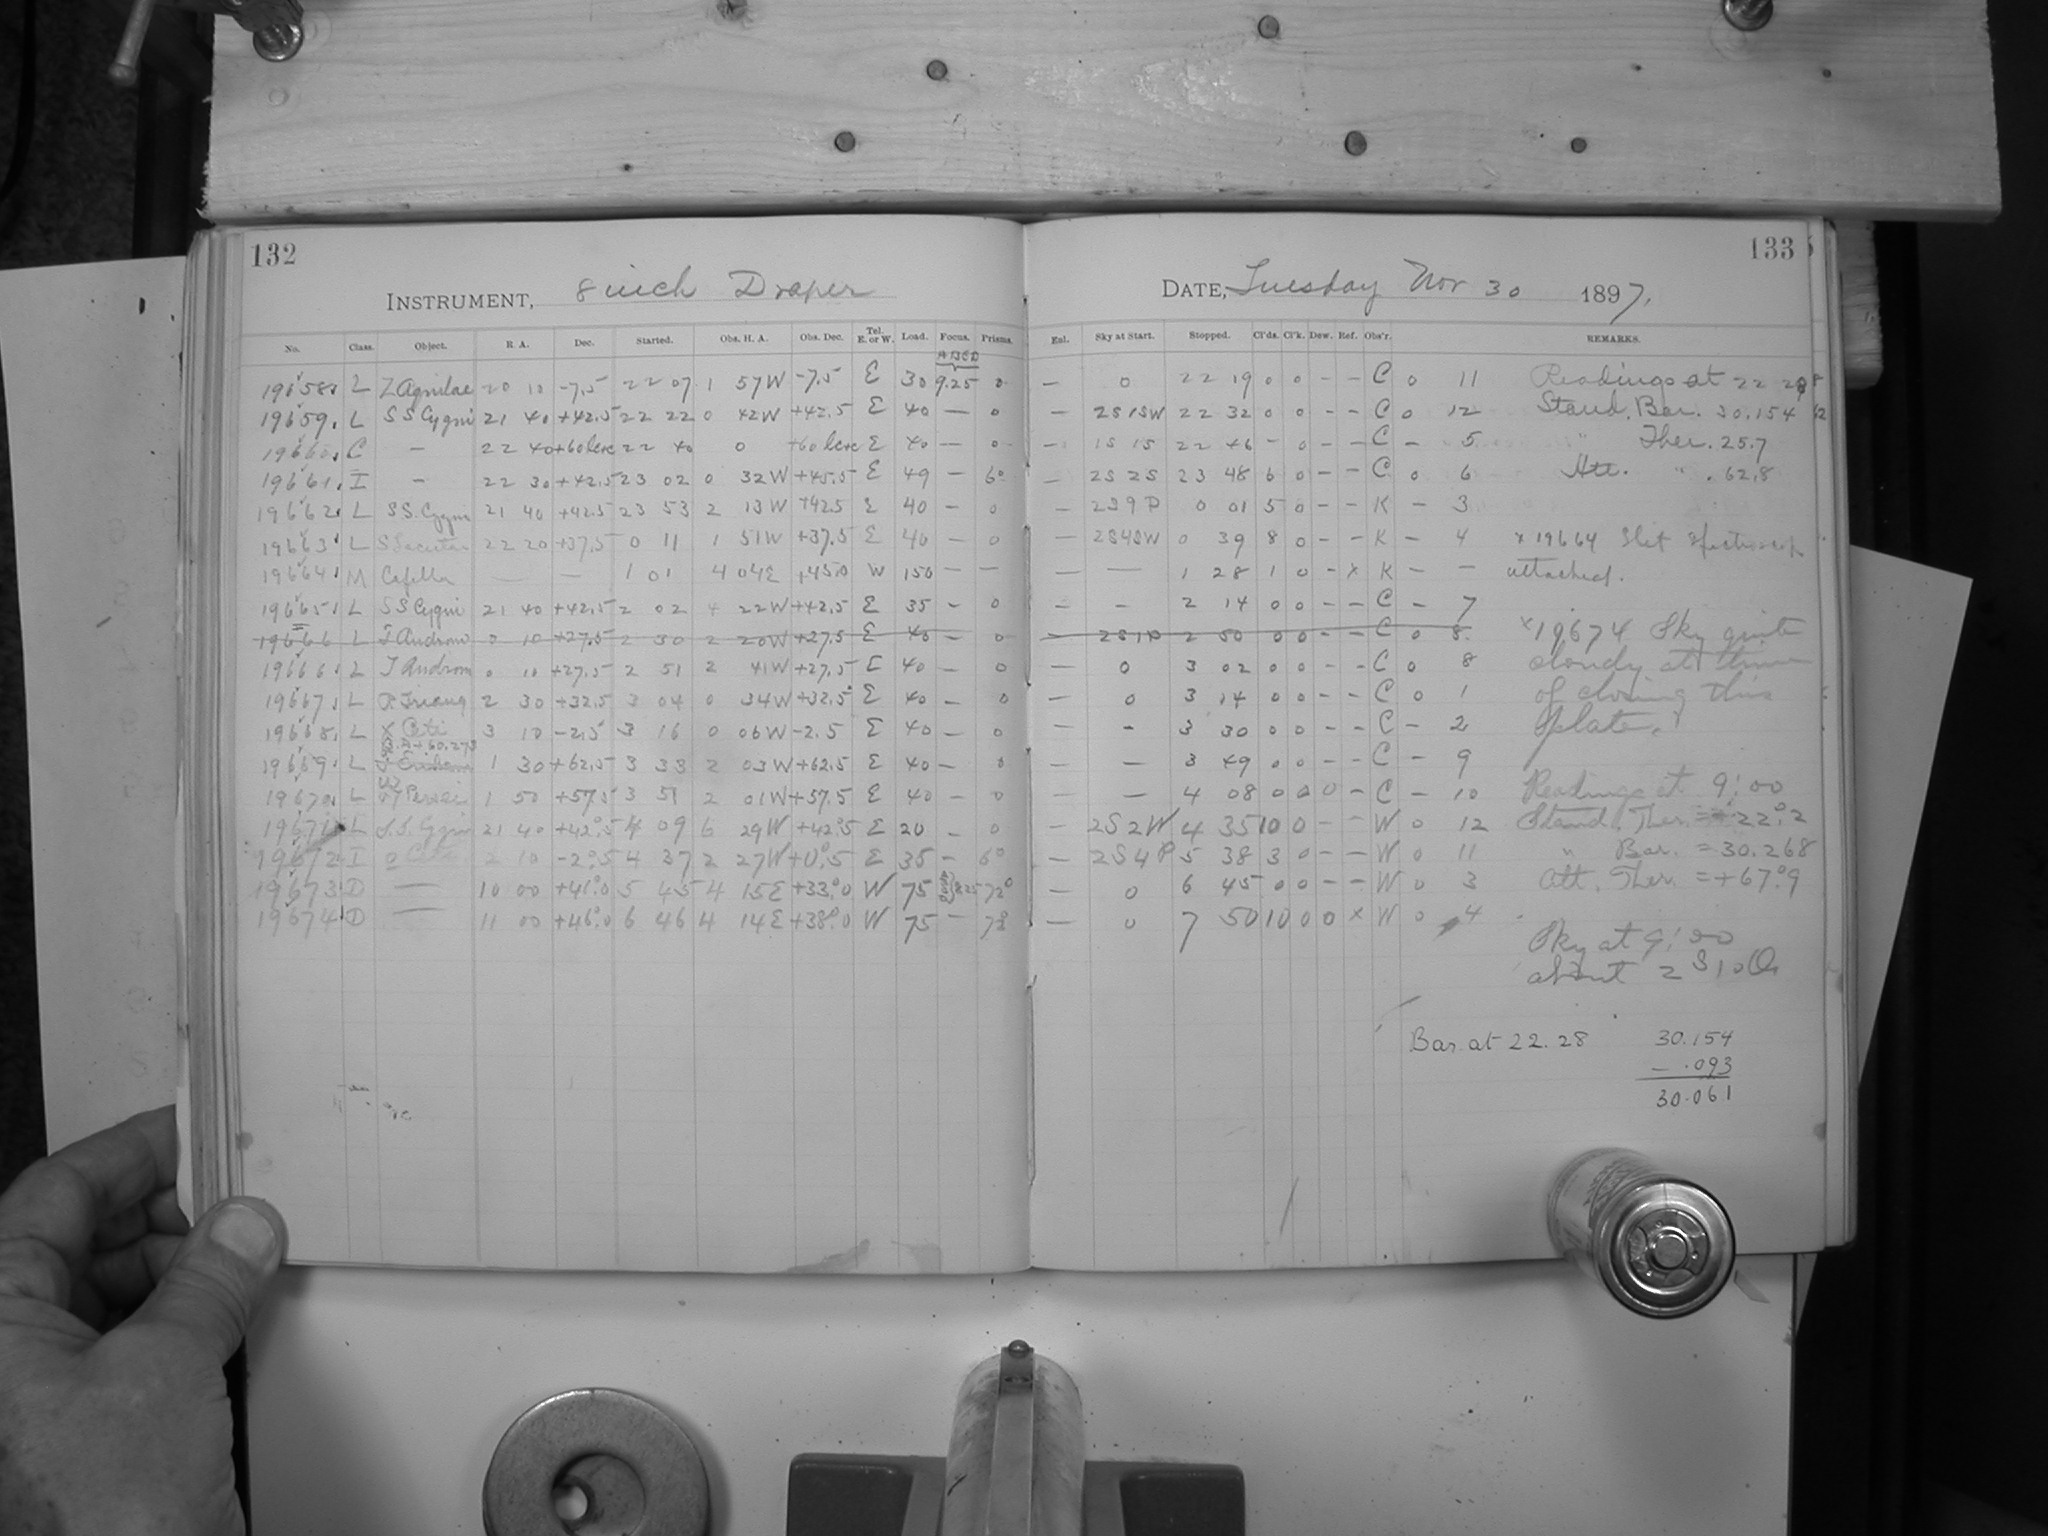 132
133
INSTRUMENT, 8 inch Draper
DATE, Tuesday Nov 30 1897.
No. Class. Object. R A. Dec. Started. Obs. H. A. Obs. Dec. Tel. E. or W. Load. Focus. Prisms. Enl. Sky at Start. Stopped. Cl'ds. Cl'k. Dew. Ref. Obs'r. REMARKS.
19658 L Z Aquilae 20 10 -7.5 22 07 1 57W -7.5 E 30 9.25 0 — 0 22 19 0 0 - - C 0 11 Readings at 22 28
19659 L SS Cygni 21 40 +42.5 22 22 0 42W +42.5 E 40 — 0 — 2S1SW 22 32 0 0 - - C 0 12 Stand. Bar. 30.154
19660 C — 22 40 22 40 0 E 40 — 0 — 1S 1S 22 46 - 0 - - C - 5 " Ther. 25.7
19661 I — 22 30 +42.5 23 02 0 32W +45.5 E 49 — 60 — 2S 2S 23 48 6 0 - - C 0 6 Att. " . 62.8
19662 L SS. Cygni 21 40 +42.5 23 53 2 13W +42.5 E 40 — 0 — 2S9P 0 01 5 0 - - K - 3
19663 L S Lacertae 22 20 +37.5 0 11 1 51W +37.5 E 40 — 0 — 2S4SW 0 39 8 0 - - K - 4 x 19664 Slit spectroscope
19664 M Capella — — 1 01 4 04E +45.0 W 150 — — — — 1 28 1 0 - x K - - attached.
19665 L SS Cygni 21 40 +42.5 2 02 4 22W +42.5 E 35 — 0 — - 2 14 0 0 - - C - 7
19666 L T Androm 0 10 +27.5 2 30 2 20W +27.5 E 40 — 0 — 2S1P 2 50 0 0 - - C 0 8. x19674 Sky quite
19666 L T Androm 0 10 +27.5 2 51 2 41W +27.5 E 40 — 0 — 0 3 02 0 0 - - C 0 8 cloudy at time
19667 L R Triang 2 30 +32.5 3 04 0 34W +32.5 E 40 — 0 — 0 3 14 0 0 - - C 0 1 of closing this
19668 L X Ceti 3 10 -2.5 3 16 0 06W -2.5 E 40 — 0 — - 3 30 0 0 - - C - 2 plate.
19669 L 1 30 +62.5 3 33 2 03W +62.5 E 40 — 0 — — 3 49 0 0 - - C - 9
19670 L Persei 1 50 +57.5 3 51 2 01W +57.5 E 40 — 0 — — 4 08 0 0 0 - C - 10 Readings at 9:00
19671 L S.S. Cygni 21 40 +42°.5 4 09 6 29W +42°.5 E 20 — 0 — 2S2W 4 35 10 0 - - W 0 12 Stand. Ther. = 22°.2
19672 I o Ceti 2 10 -2°.5 4 37 2 27W +0°.5 E 35 — 6° — 2S4P 5 38 3 0 - - W 0 11 " Bar. = 30.268
19673 D — 10 00 +41°.0 5 45 4 15E +33°.0 W 75 — 0 6 45 0 0 - - W 0 3 Att. Ther. = +67°.9
19674 D — 11 00 +46°.0 6 46 4 14E +38°.0 W 75 — — 0 7 50 10 0 0 x W 0 4
Sky at 9:00
about 2 S 10
Bar. at 22.28 30.154
- .093
30.061